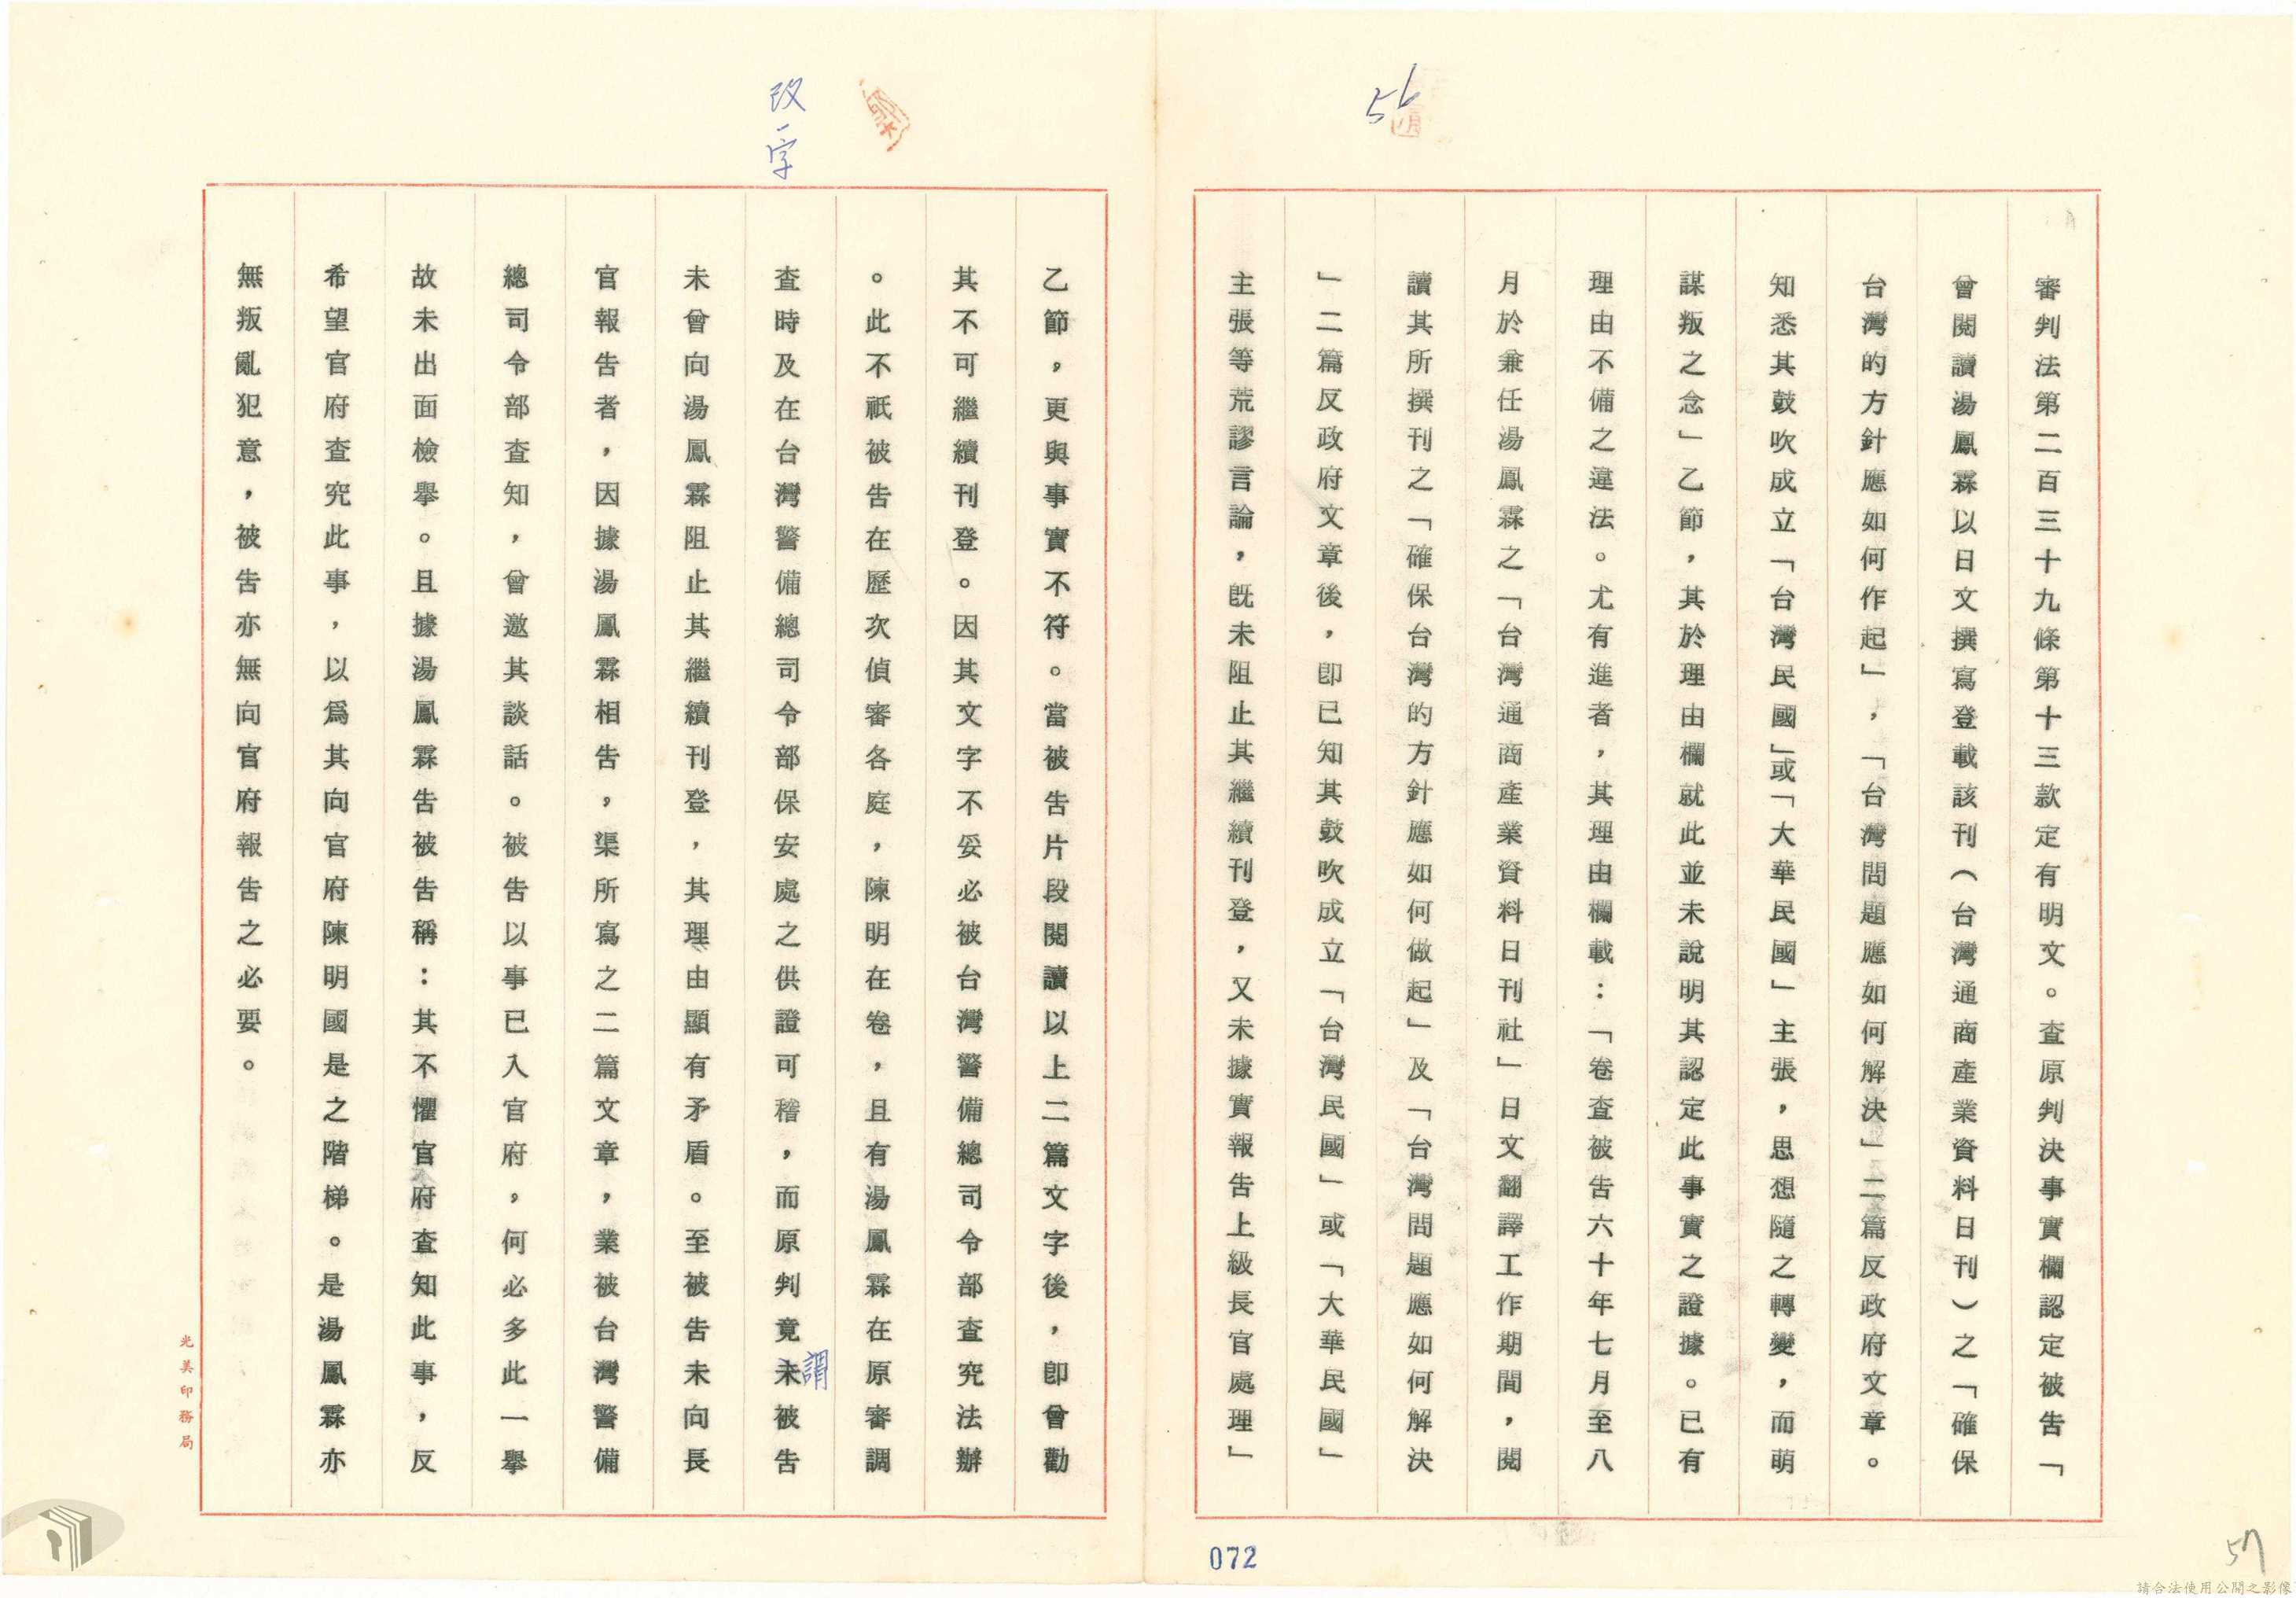 56
審判法第二百三十九條第十三款定有明文。查原判決事實欄認定被告「
曾閱讀湯鳳霖以日文撰寫登載該刊（台灣通商產業資料日刊）之「確保
台灣的方針應如何作起」，「台灣問題應如何解決」二篇反政府文章。
知悉其鼓吹成立「台灣民國」或「大華民國」主張，思想隨之轉變，而萌
謀叛之念」乙節，其於理由欄就此並未說明其認定此事實之證據。已有
理由不備之違法。尤有進者，其理由欄載：「卷查被告六十年七月至八
月於兼任湯鳳霖之「台灣通商產業資料日刊社」日文翻譯工作期間，閱
讀其所撰刊之「確保台灣的方針應如何做起」及「台灣問題應如何解決
」二篇反政府文章後，即已知其鼓吹成立「台灣民國」或「大華民國」
主張等荒謬言論，既未阻止其繼續刊登，又未據實報告上級長官處理」
072
57
改一字
乙節，更與事實不符。當被告片段閱讀以上二篇文字後，即曾勸
其不可繼續刊登。因其文字不妥必被台灣警備總司令部查究法辦
。此不祇被告在歷次偵審各庭，陳明在卷，且有湯鳳霖在原審調
查時及在台灣警備總司令部保安處之供證可稽，而原判竟謂被告
未曾向湯鳳霖阻止其繼續刊登，其理由顯有矛盾。至被告未向長
官報告者，因據湯鳳霖相告，渠所寫之二篇文章，業被台灣警備
總司令部查知，曾邀其談話。被告以事已入官府，何必多此一舉
故未出面檢舉。且據湯鳳霖告被告稱：其不懼官府查知此事，反
希望官府查究此事，以為其向官府陳明國是之階梯。是湯鳳霖亦
無叛亂犯意，被告亦無向官府報告之必要。
光美印務局
請合法使用公開之影像